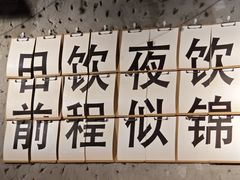 日饮夜饮
前程似锦